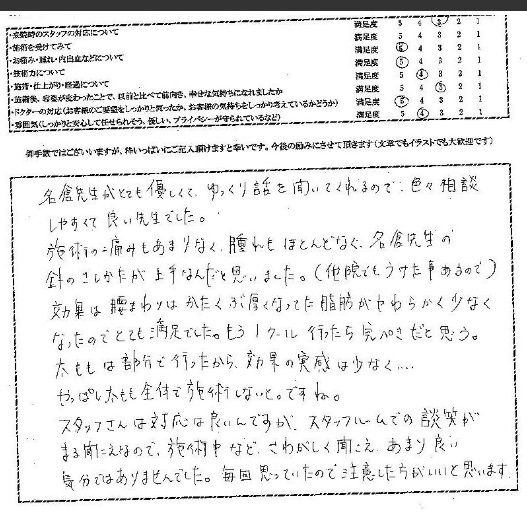 ・来院時のスタッフの対応について 満足度 5 4 3 2 1
・施術を受けてみて 満足度 5 4 3 2 1
・お痛み・腫れ・内出血などについて 満足度 5 4 3 2 1
・技術力について 満足度 5 4 3 2 1
・施術・仕上がり・経過について 満足度 5 4 3 2 1
・施術後、お姿が変わったことで、以前と比べて前向き、幸せな気持ちになれましたか 満足度 5 4 3 2 1
・ドクターの対応(お客様のご要望をしっかりと伺ったか、お客様の気持ちをしっかり考えているかどうか) 満足度 5 4 3 2 1
・雰囲気(しっかりと安心して任せられそう、優しい、プライバシーが守られているなど) 満足度 5 4 3 2 1
御手数ではございますが、枠いっぱいにご記入頂けますと幸いです。今後の励みにさせて頂きます(文章でもイラストでも大歓迎です)
名倉先生がとても優しくて、ゆっくり話を聞いてくれるので、色々相談
しやすくて良い先生でした。
施術の痛みもあまりなく、腫れもほとんどなく、名倉先生の
針のさしかたが上手なんだと思いました。(他院でもうけた事あるので)
効果は腰まわりはかたくぶ厚くなってた脂肪がやわらかく少なく
なったのでとても満足でした。もう1クール行ったら完ぺきだと思う。
太ももは部分で行ったから、効果の実感は少なく…
やっぱし太もも全体で施術しないと。ですね。
スタッフさんは対応は良いんですが、スタッフルームでの談笑が
まる聞こえなので、施術中など、さわがしく聞こえ、あまり良い
気分ではありませんでした。毎回思っていたので注意した方がいいと思います